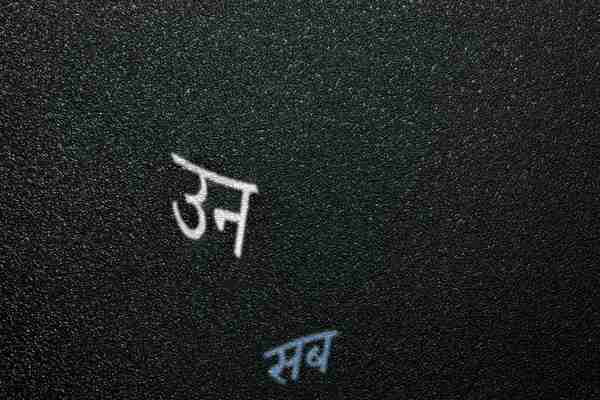 उन
सब